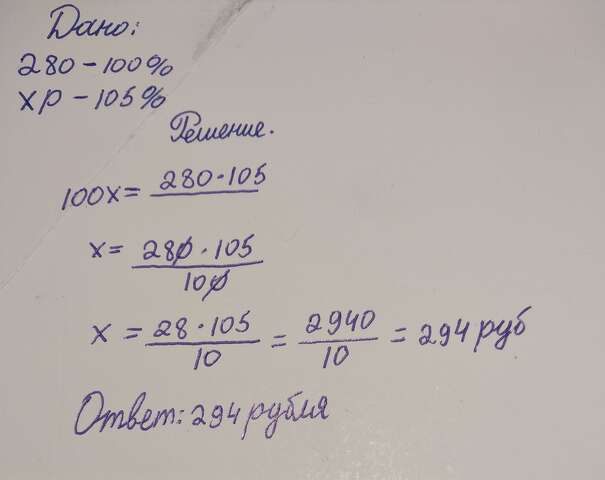 Дано:
280 – 100%
хр – 105%
Решение.
100х = 280 · 105
х = 280 · 105 / 100
х = 28 · 105 / 10 = 2940 / 10 = 294 руб
Ответ: 294 рубля